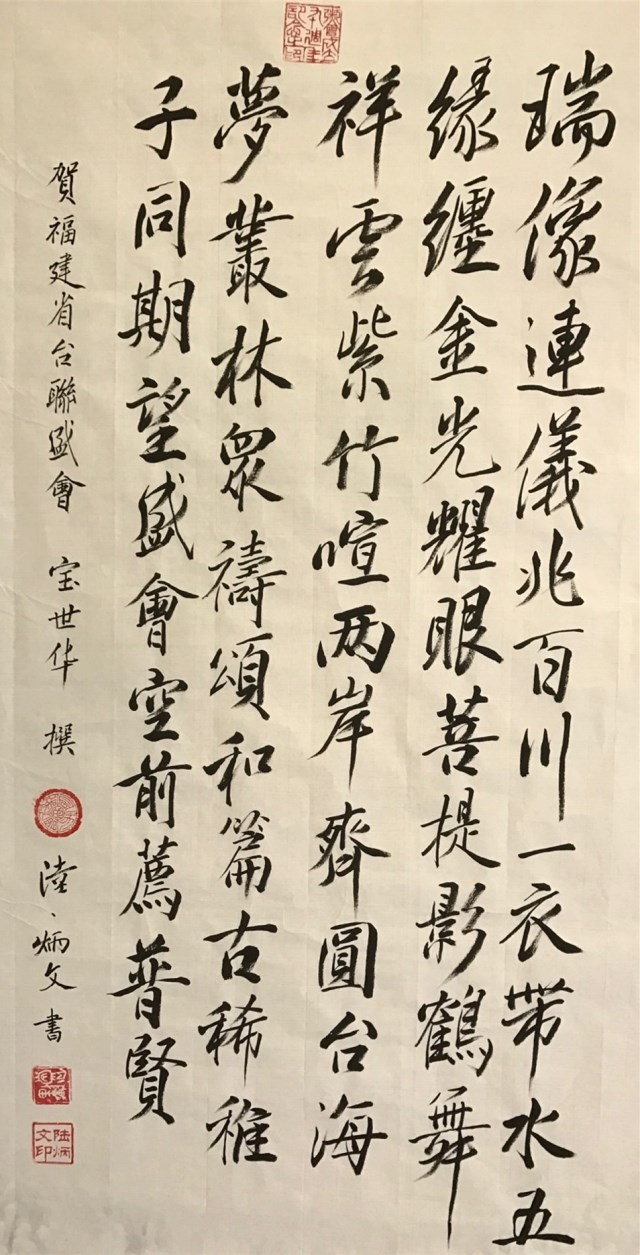 瑞像連儀兆百川一衣帶水五
緣纏金光耀眼菩提影鶴舞
祥雲紫竹喧两岸齊圓台海
夢叢林眾禱頌和篇古稀稚
子同期望盛會空前薦普賢
贺福建省台聯盛會 宝世华 撰
陸炳文書
陆炳文印